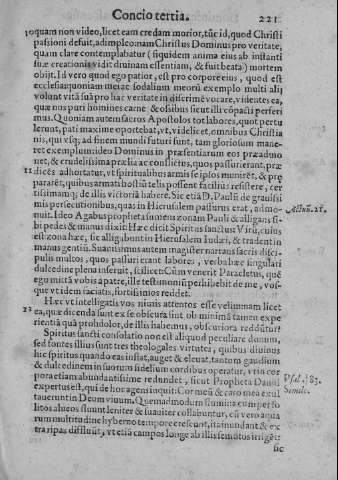 Concio tertia. 221
10 quam non video, licet eam credam morior, tūc id, quod Christi
passioni defuit, adimpleo: nam Christus Dominus pro veritate,
quam clare contemplabatur (siquidem anima eius ab instanti
suæ creationis vidit divinam essentiam, & fuit beata) mortem
obijt. Id vero quod ego patior, est pro corpore eius, quod est
ecclesia: quoniam meiæ sodalium meorū exemplo multi alij
volunt vitā suā pro hac veritate in discrimē vocare, videntes ea,
quæ nos puri homines carne & ossibus sicut illi cōpacti perferi
mus. Quoniam autem sacros Apostolos tot labores, quot pertu
lerunt, pati maxime oportebat, vt, videlicet, omnibus Christia
nis, qui vsq; ad finem mundi futuri sunt, tam gloriosum mane-
ret exemplum: ideo Dominus in præsentiarum eos præadmo
net, & crudelissima prælia ac conflictus, quos passuri erant, præ
11 dicēs adhortatur, vt spiritualibus armis se ipsos munirēt, & prę
pararēt, quibus armati hostiū telis possent facilius resistere, cer
tissimamq; de illis victoriā habere. Sic etiā D. Pauli de gravissi
mis persecutionibus, quas in Hierusalem passurus erat, admo-
nuit. Ideo Agabus propheta sumens zonam Pauli & alligans si-
bi pedes & manus dixit: Hæc dicit Spiritus sanctus: Virū, cuius
est zona hæc, sic alligabunt in Hierusalem Iudæi, & tradent in
manus gentiū. Suavissimus autem magister narrans sacris disci-
pulis multos, quos passuri erant labores, verba hæc singulari
dulcedine plena inseruit, scilicet: Cùm venerit Paracletus, quē
ego mittā vobis à patre, ille testimoniū perhibebit de me, vos-
que vt idem faciatis, fortissimos reddet.
Hæc vt intelligatis vos nivis attentos esse velim: nam licet
12 ea, quæ dicenda sunt ex se obscura sint ob minimā tamen expe
rientiā quā prohdolor, de illis habemus, obscuriora reddūtur.
Spiritus sancti consolatio non est aliquod peculiare donum,
sed fontes illius sunt tres theologales virtutes, quibus divinus
hic spiritus quando eas insflat, auget & elevat, tantum gaudium
& dulcedinem in suorum fidelium cordibus operatur, vt in cor
pora etiam abundantissime redundet, sicut Propheta David
expertus est, qui de hora gen inquit: Cor meū & caro mea exul
taverunt in Deum vivum. Quemadmodum flumina cum per so
litos alueos fluunt leniter & suaviter collabuntur, cū vero aqua
rum multitudine hyberno tempore crescunt, ita inundant & ex
tra ripas diffluūt, vt etiā campos longe ab illis semotos irrigēt:
sic
Actuū. 21.
Psal. 83.
Simile.